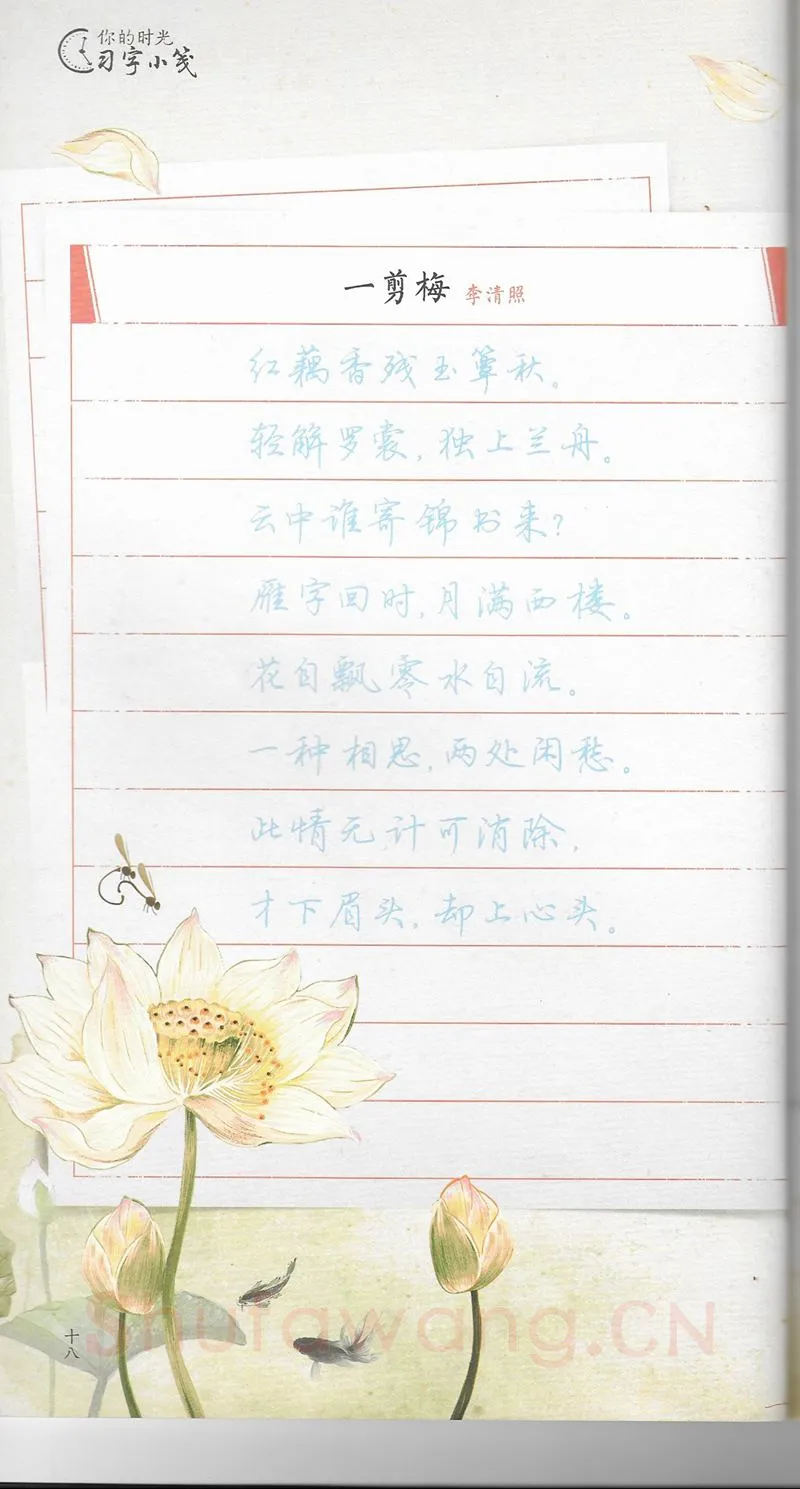 你的时光
习字小笺
一剪梅 李清照
红藕香残玉簟秋。
轻解罗裳，独上兰舟。
云中谁寄锦书来？
雁字回时，月满西楼。
花自飘零水自流。
一种相思，两处闲愁。
此情无计可消除，
才下眉头，却上心头。
十八
Shufawang.CN